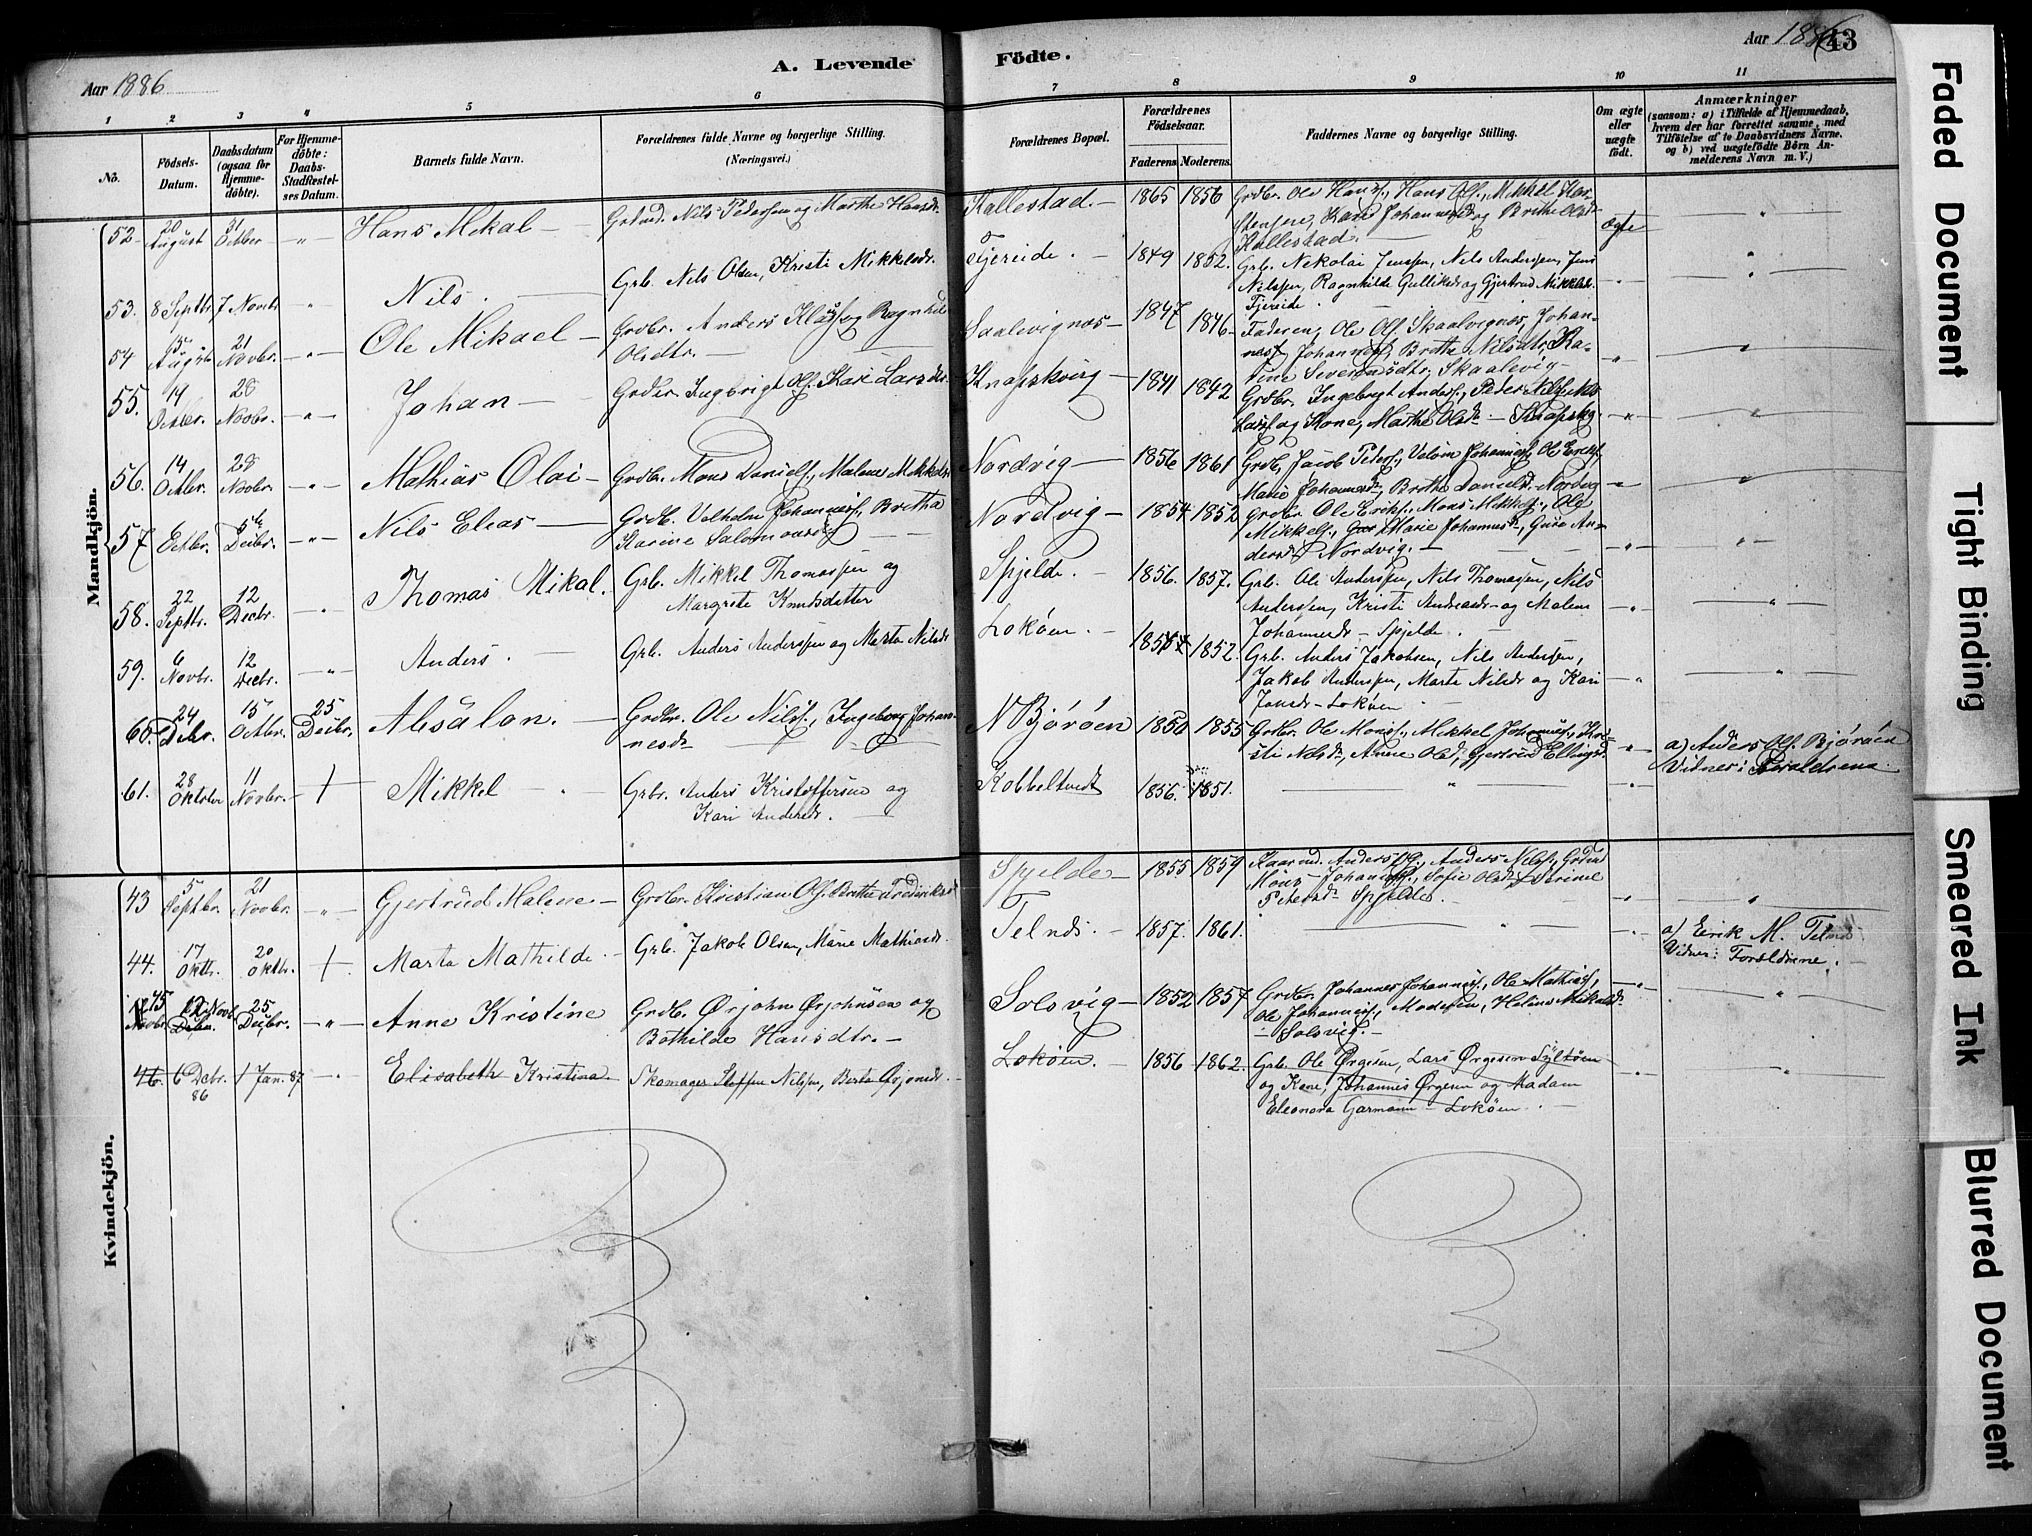 Aar 1886
A. Levende
Födte.
Aar 1886
43
1 2 3 4 5 6 7 8 9 10 11
No.
Födsels-Datum.
Daabsdatum (ogsaa for Hjemmedöbte).
For Hjemmedöbte: Daabs-Stadfæstelses Datum.
Barnets fulde Navn.
Forældrenes fulde Navne og borgerlige Stilling.
(Næringsvei.)
Forældrenes Bopæl.
Forældrenes Födselsaar.
Faderens. Moderens.
Faddernes Navne og borgerlige Stilling.
Om ægte eller uægte födt.
Anmærkninger
(saasom: a) i Tilfælde af Hjemmedaab, hvem der har forrettet samme, med Tilföielse af to Daabsvidners Navne. og b) ved uægtefödte Börn Anmelderens Navn m. V.)
Mandkjön.
52. 20 August 31 Octber - " - Hans Mikal - Nils Pedersen og Marthe Hansdr. Kallestad. - 1865 1856 Grdbr. Ole Hanss., Hans Ols., Mikkel Kar-
stensen, Kari Johannesd. og Brithe Olsdr
Kallestad. - ægte "
53. 8 Septbr. 7 Novbr. " Nils. Grb. Nils Olsen, Kristi Mikkelsdr. Tjereide. - 1849 1852. Grb. Nikolai Jenssen, Nils Anderssen, Jens
Nilssen, Ragnhilde Gulliksdr og Gjertrud Mikkelsd.
Tjereide. - " - "
54 15 August 21 Novbr. - " - Ole Mikael - Grdbr. Anders Klauss. og Ragnhild
Olsdtr. - Skaalevignæs - 1847 1846 - Faderen, Ole Ols. Skaalvignæs, Johan-
nes Johanness., Brithe Nilsdtr, Ka-
rine Severinsdtr, Skaalevig - "
55. 19 Octbr. 28 Novbr. - " - Johan - Grdbr. Ingbrigt Ols. Kari Larsdr. Knapskvig - 1841 1842 Grdbr. Ingebrigt Anders., Peder Nils., Nils
Larss. og Kone, Marthe Olsdr - Knapskvg. - " -
56. 14 Octbr. 28 Novbr. - " - Mathias Olai - Grdbr. Mons Daniels., Malene Mikkelsdr Nordvig - 1856 1861 Grdb. Jacob Peders., Velom Johanness., Ole Eriks.,
Marie Johannesd., Brithe Danielsdr. Nordvig "
57 Octbr. 5te Decbr. - " - Nils Elias - Grdb. Velhelm Johanness., Bretha
Karine Salomonsd. Nordvig - 1854 1852 Grdbr Ole Eriks., Mons Mikkels., Ole
Mikkels., Marie Johannesd., Guro An-
dersd. Nordvig. - - " - "
58. 22 Septbr. 12 Decbr. " Thomas Mikal. Grb. Mikkel Thomassen og
Margrete Knudsdatter Spjelde. - 1856. 1857. Grb. Ole Anderssen, Nils Thomassen, Nils
Anderssen, Kristi Andreasdr og Malene
Johannesdr - Spjelde. - " - "
59. 6 Novbr. 12 Decbr. - " - Anders. - Grb. Anders Anderssen og Marta Nilsdr Lokøen. - 1854 1852. Grb. Anders Jakobsen, Nils Andersen,
Jakob Anderssen, Marta Nilsdr og Kari
Jonsdr - Lokøen - " "
60. 24 Decbr. 15 Octbr. 25 Decbr. Absalon. - Grdbr. Ole Nils., Ingeborg Johan-
nesdr N Bjørøen 1850 1855 Grdbr. Ole Monss., Mikkel Johanness., Kri-
sti Nilsdr, Anne Olsd., Gjertrud Ellingsd. " a) Anders Ols. Bjørøen
Vidner: Forældrene.
61. 28 Oktober 11 Novbr. - + Mikkel - " - Grbr. Anders Kristoffersen og
Kari Andersdr. - Kobbeltvedt 1856. 1851. " - " -
Kvindekjön.
43 5 Septbr. 21 Novbr. - " - Gjertrud Malene - Grdbr. Kristian Ols. Brithe Fredriksd. Spjelde - 1855 1859 Anders Ols., Anders Nilss.,
Johanness., Sofie Olsd.
Petersdr Spjelde. - " "
44. 17 Oktbr. 20 Oktbr. + Marta Mathilde. - Grb. Jakob Olsen, Marie Mathiasdr. Telnes. - 1857. 1861. " - " - a) Eirik M. Telnes
Vidner: Forældrene.
45 Novbr. 25 Decbr. - " - Anne Kristine Grdb. Ørjohn Ørjohnsen og
Bothilde Hansdtr. - Solsvig - 1852 1857 Grdbr. Johannes Johanness., Ole Mathias.,
Ole Johanness., Moderen, Helene Mikalsd.
- Solsvig. - " "
46. 6 Decbr. 86 1 Jan. 87 " Elisabeth Kristina. Skomager Steffen Nilssen, Berta Gjønesd. - Lokøen. - 1856 1862. Grb. Ole Ørgesen, Lars Ørgesen Syltøen
og Kone, Johannes Ørgesen og Madam
Eleonora Garmann - Lokøen. - " "
Faded Document
Tight Binding
Smeared Ink
Blurred Document